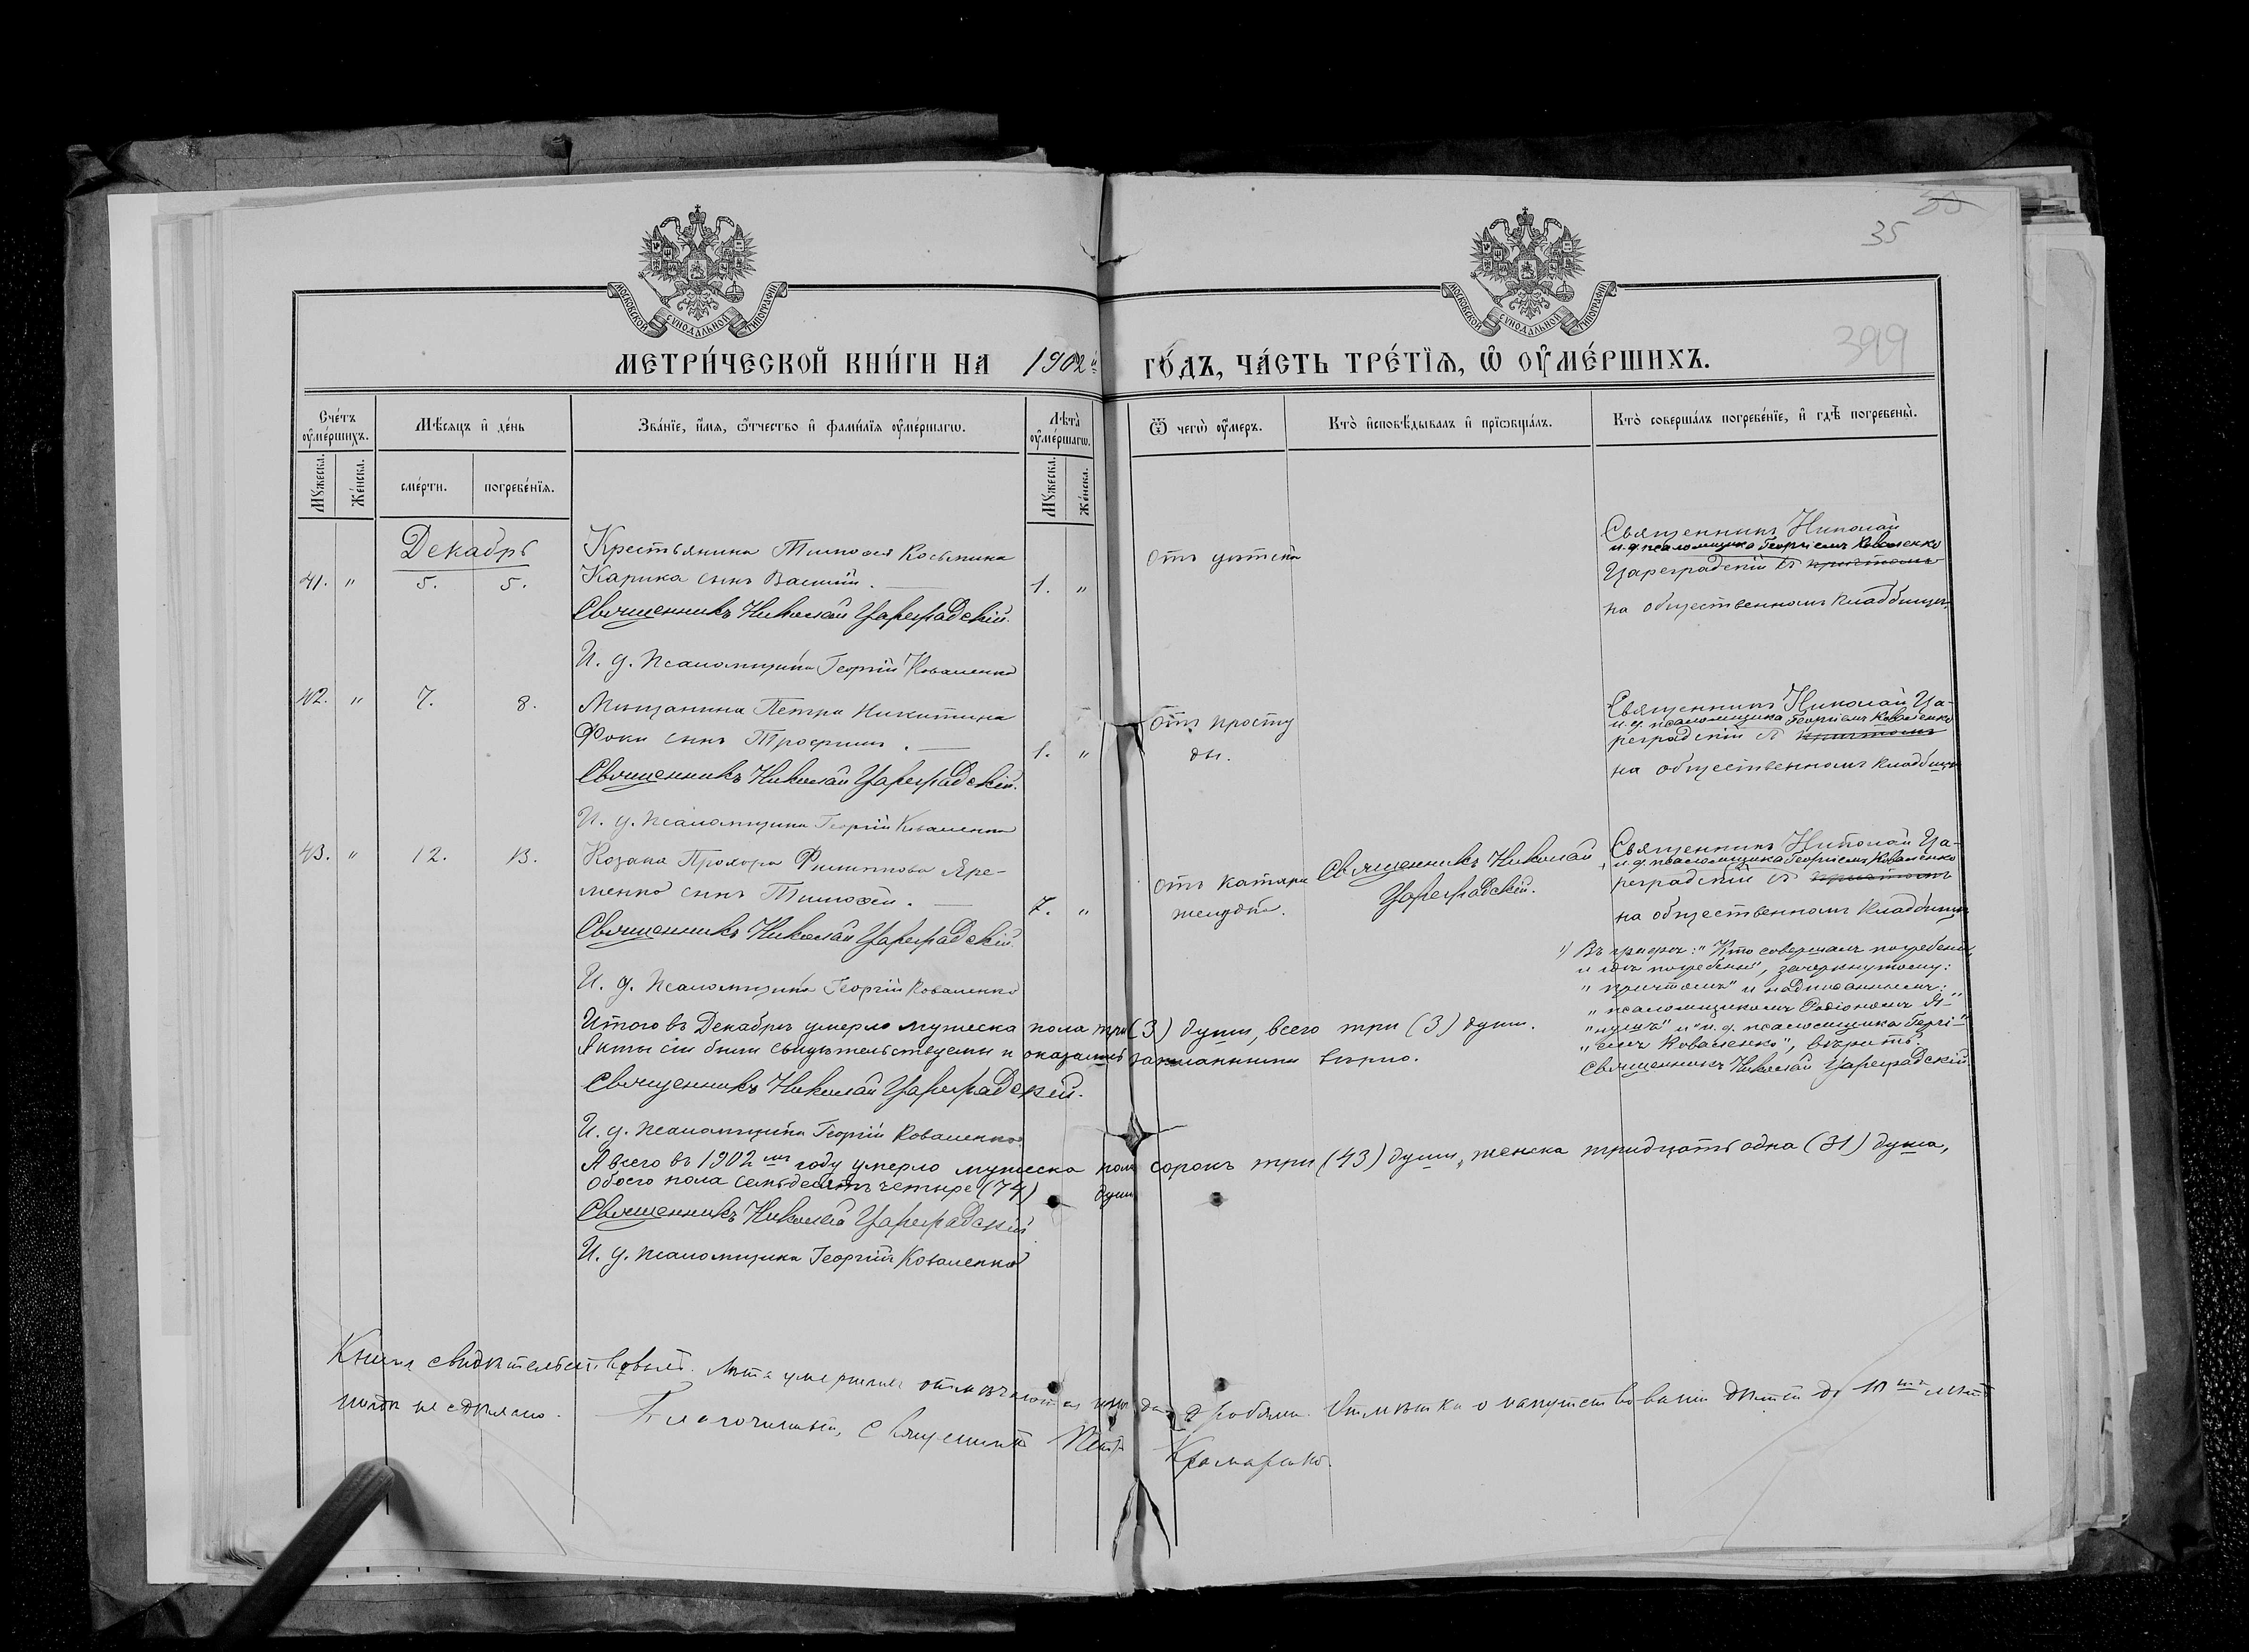 35
МОСКОВСКОЙ СѴНОДАЛЬНОЙ ТИПОГРАФІИ
МОСКОВСКОЙ СѴНОДАЛЬНОЙ ТИПОГРАФІИ
399
МЕТРИ́ЧЕСКОЙ КНИ́ГИ НА 1902й ГО́ДЪ, ЧА́СТЬ ТРЕ́ТІѦ, Ѡ ОУ҆МЕ́РШИХЪ.
Сче́тъ оу҆ме́ршихъ.
Мѣ́сяцъ и҆ де́нь
Зва́нїе, и҆́мя, ѻ҆́тчество и҆ фами́лїя оу҆ме́ршагѡ.
Лѣ́та оу҆ме́ршагѡ.
Ѿ чегѡ̀ оу҆́меръ.
Кто̀ и҆сповѣ́дывалъ и҆ прїѡбща́лъ.
Кто̀ соверша́лъ погребе́нїе, и҆ гдѣ̀ погребены̀.
Мꙋжеска.
Же́нска.
сме́рти.
погребе́нїя.
Мꙋжеска.
Же́нска.
Декабрь
41. " 5. 5.
Крестьянина Тимофея Косьмина
Карика сынъ Василій.
1. "
Священникъ Николай Цареградскій.
И. д. псаломщика Георгій Коваленко
Священникъ Николай
и.д. псаломщика Георгіемъ Коваленко
Цареградскій съ причтомъ
на общественномъ кладбищѣ
42. " 7. 8.
Мѣщанина Петра Никитина
Фоки сынъ Трофимъ.
1. "
Священникъ Николай Цареградскій.
И. д. псаломщика Георгій Коваленко
Отъ просту
ды.
Священникъ Николай Ца-
и.д. псаломщика Георгіемъ Коваленко
реградскій съ причтомъ
на общественномъ кладбищѣ
43. " 12. 13.
Козака Прохора Филиппова Яре-
менко сынъ Тимофей.
7. "
Священникъ Николай Цареградскій.
И. д. псаломщика Георгій Коваленко
Отъ катара
желудка.
Священникъ Николай
Цареградскій.
Священникъ Николай Ца-
и.д. псаломщика Георгіемъ Коваленко
реградскій съ причтомъ
на общественномъ кладбищѣ
1) Въ графѣ: "Кто совершалъ погребеніе
и гдѣ погребены", зачеркнутому:
"причтомъ" и надписаннымъ:
"псаломщикомъ
и "и. д. псаломщика Георгі-"
"емъ Коваленко", вѣрить.
Священникъ Николай Цареградскій
Итого въ Декабрѣ умерло мужеска пола три (3) души, всего три (3) души.
Акты сіи были свидѣтельствуемы и оказались записанными вѣрно.
Священникъ Николай Цареградскій.
И. д. псаломщика Георгій Коваленко
А всего въ 1902мъ году умерло мужеска пола сорокъ три (43) души, женска тридцать одна (31) душа,
обоего пола семьдесятъ четыре (74) души
Священникъ Николай Цареградскій
И. д. псаломщика Георгій Коваленко
Книги свидѣтельствовалъ. Лѣта умершихъ отмѣчаются дробями. Отмѣтки о напутствованіи дѣтей до лѣтъ
не сдѣлано. Благочинный, Священникъ Петръ Крамаренко.